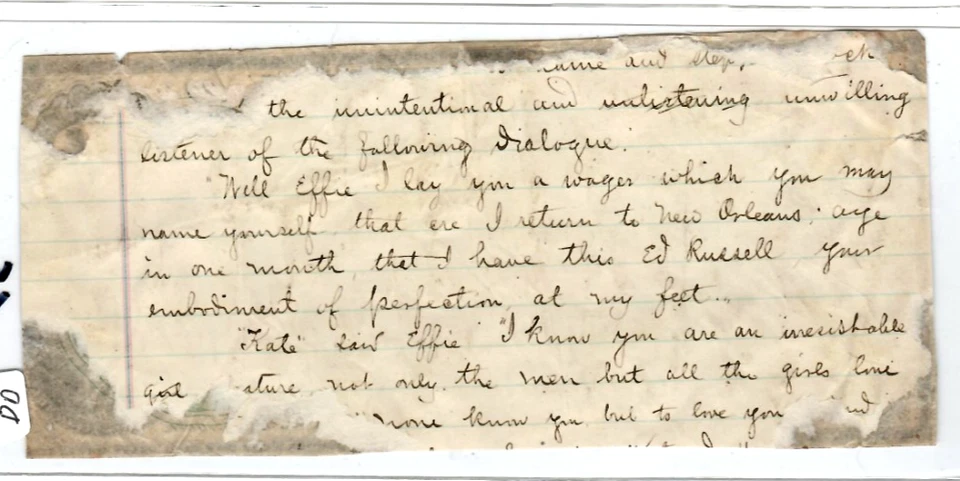 and step,
the unintentional and unlistening unwilling
listener of the following Dialogue.
"Well Effie I lay you a wager which you may
name yourself that ere I return to New Orleans, aye
in one month, that I have this Ed Russell your
embodiment of perfection, at my feet..
"Kate" said Effie "I know you are an irresistable
girl ature not only the men but all the girls love
none know you but to love you
DD